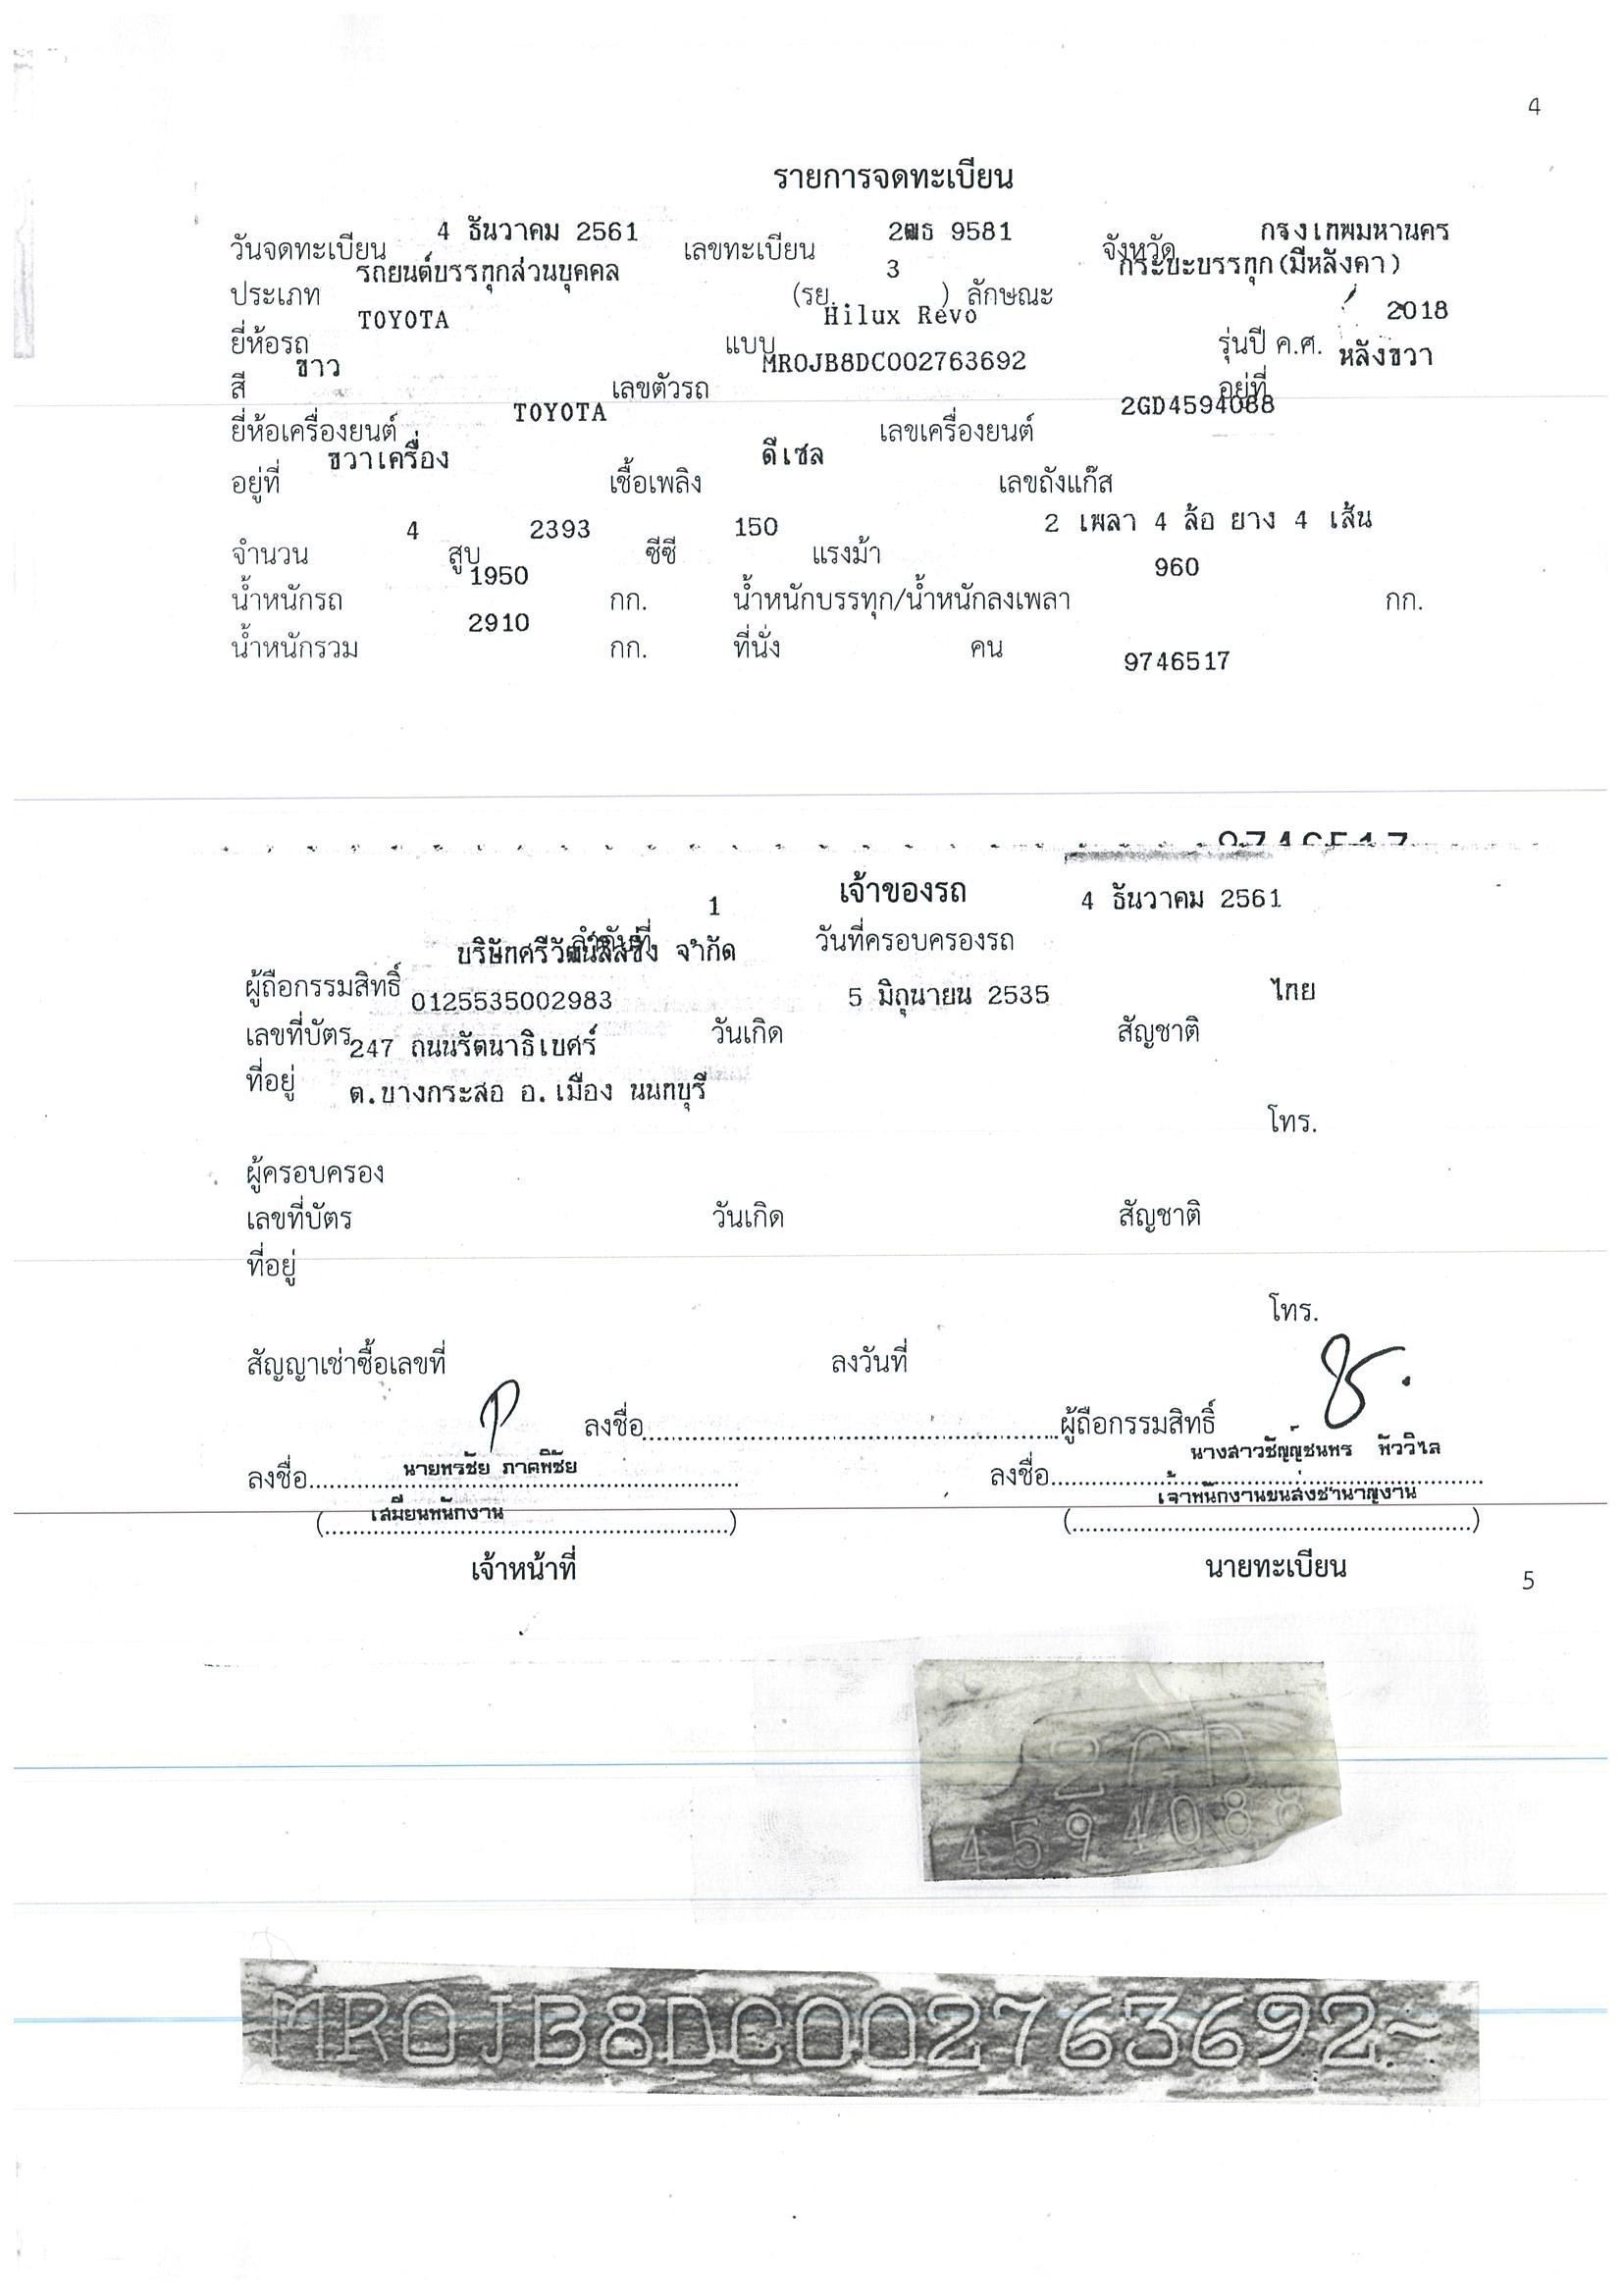 4
รายการจดทะเบียน
วันจดทะเบียน 4 ธันวาคม 2561 เลขทะเบียน 2ฒธ 9581 จังหวัด กรุงเทพมหานคร
ประเภท รถยนต์บรรทุกส่วนบุคคล (รย. 3 ) ลักษณะ กระบะบรรทุก(มีหลังคา)
ยี่ห้อรถ TOYOTA แบบ Hilux Revo รุ่นปี ค.ศ. 2018
สี ขาว เลขตัวรถ MR0JB8DC002763692 อยู่ที่ หลังขวา
ยี่ห้อเครื่องยนต์ TOYOTA เลขเครื่องยนต์ 2GD4594088
อยู่ที่ ขวาเครื่อง เชื้อเพลิง ดีเซล เลขถังแก๊ส
จำนวน 4 สูบ 2393 ซีซี 150 แรงม้า 2 เพลา 4 ล้อ ยาง 4 เส้น
น้ำหนักรถ 1950 กก. น้ำหนักบรรทุก/น้ำหนักลงเพลา 960 กก.
น้ำหนักรวม 2910 กก. ที่นั่ง คน 9746517
เจ้าของรถ
ลำดับที่ 1 วันที่ครอบครองรถ 4 ธันวาคม 2561
ผู้ถือกรรมสิทธิ์ บริษัทศรีวัฒนลีสซิ่ง จำกัด
เลขที่บัตร 0125535002983 วันเกิด 5 มิถุนายน 2535 สัญชาติ ไทย
ที่อยู่ 247 ถนนรัตนาธิเบศร์
ต.บางกระสอ อ.เมือง นนทบุรี
โทร.
ผู้ครอบครอง
เลขที่บัตร วันเกิด สัญชาติ
ที่อยู่
โทร.
สัญญาเช่าซื้อเลขที่ ลงวันที่
ลงชื่อ ผู้ถือกรรมสิทธิ์
ลงชื่อ นายพรชัย ภาคพิชัย ลงชื่อ นางสาวชัญญ์ชนพร พัววิไล
(เสมียนพนักงาน) (เจ้าพนักงานขนส่งชำนาญงาน)
เจ้าหน้าที่ นายทะเบียน
5
2GD
4594088
MR0JB8DC002763692~